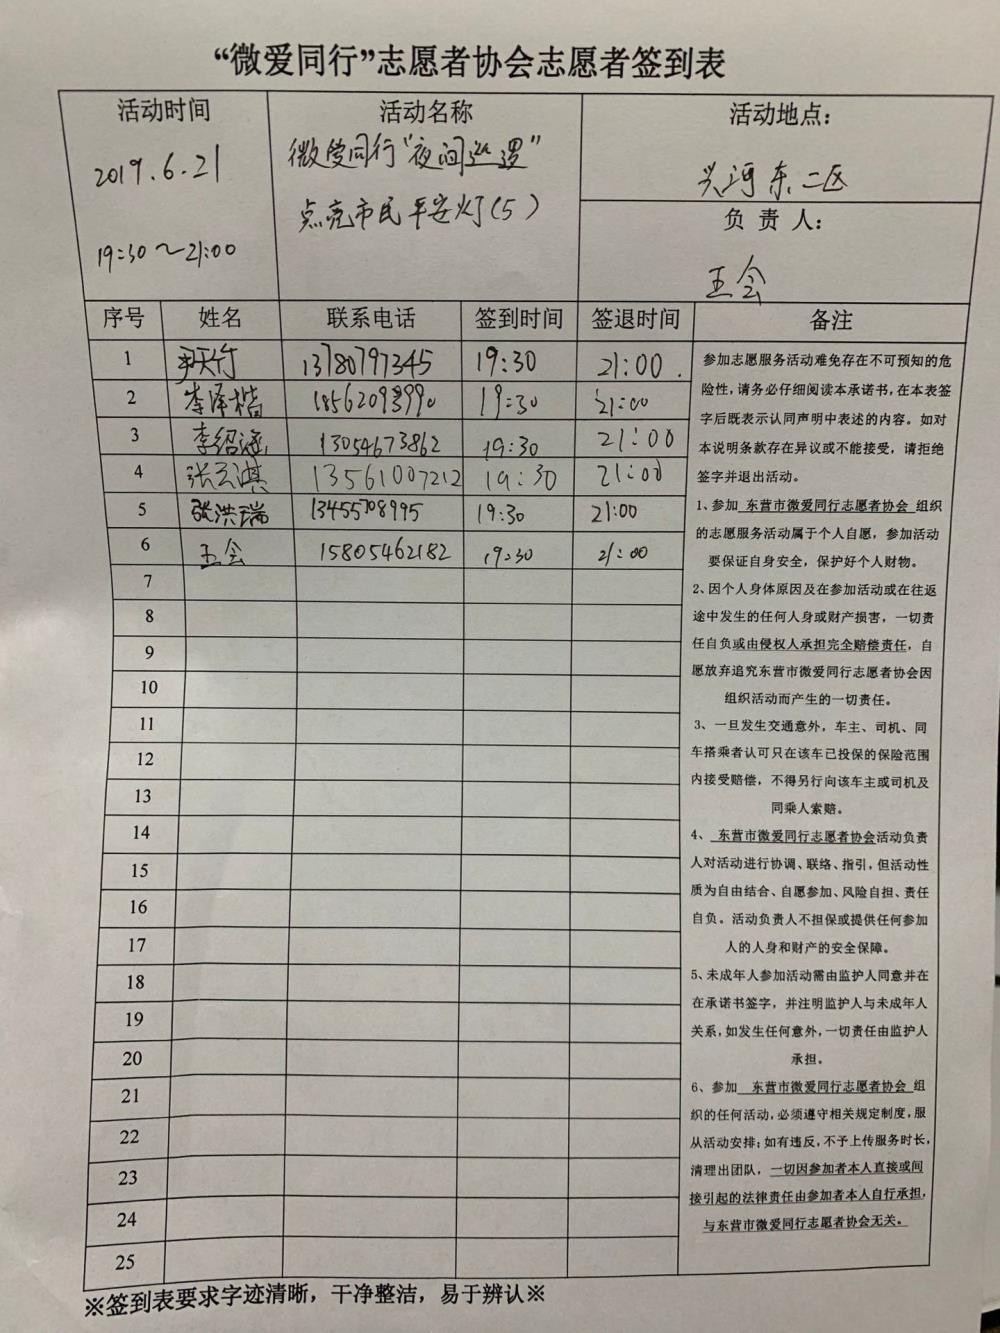 “微爱同行”志愿者协会志愿者签到表
活动时间
2019.6.21
19:30～21:00
活动名称
微爱同行“夜间巡逻”
点亮市民平安灯(5)
活动地点：
兴河东二区
负责人：
王会
序号 姓名 联系电话 签到时间 签退时间 备注
1 天竹 13780797345 19:30 21:00.
2 李泽楷 19:30 21:00
3 李绍涵 13054673862 19:30 21:00
4 张云淇 13561007212 19:30 21:00
5 张洪瑞 13455708995 19:30 21:00
6 王会 15805462182 19:30 21:00
7
8
9
10
11
12
13
14
15
16
17
18
19
20
21
22
23
24
25
参加志愿服务活动难免存在不可预知的危
险性，请务必仔细阅读本承诺书，在本表签
字后既表示认同声明中表述的内容。如对
本说明条款存在异议或不能接受，请拒绝
签字并退出活动。
1、参加 东营市微爱同行志愿者协会 组织
的志愿服务活动属于个人自愿，参加活动
要保证自身安全，保护好个人财物。
2、因个人身体原因及在参加活动或在往返
途中发生的任何人身或财产损害，一切责
任自负或由侵权人承担完全赔偿责任，自
愿放弃追究东营市微爱同行志愿者协会因
组织活动而产生的一切责任。
3、一旦发生交通意外，车主、司机、同
车搭乘者认可只在该车已投保的保险范围
内接受赔偿，不得另行向该车主或司机及
同乘人索赔。
4、 东营市微爱同行志愿者协会活动负责
人对活动进行协调、联络、指引，但活动性
质为自由结合、自愿参加、风险自担、责任
自负。活动负责人不担保或提供任何参加
人的人身和财产的安全保障。
5、未成年人参加活动需由监护人同意并在
在承诺书签字，并注明监护人与未成年人
关系，如发生任何意外，一切责任由监护人
承担。
6、参加 东营市微爱同行志愿者协会 组
织的任何活动，必须遵守相关规定制度，服
从活动安排；如有违反，不予上传服务时长，
清理出团队，一切因参加者本人直接或间
接引起的法律责任由参加者本人自行承担，
与东营市微爱同行志愿者协会无关。
※签到表要求字迹清晰，干净整洁，易于辨认※